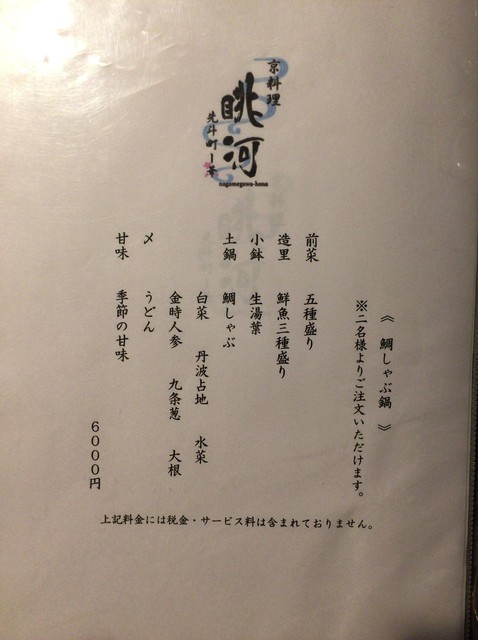 京料理
眺河
先斗町一花
nagamegawa-hana
《 鯛しゃぶ鍋 》
※二名様よりご注文いただけます。
前菜 五種盛り
造里 鮮魚三種盛り
小鉢 生湯葉
土鍋 鯛しゃぶ
白菜 丹波占地 水菜
金時人参 九条葱 大根
〆 うどん
甘味 季節の甘味
6000円
上記料金には税金・サービス料は含まれておりません。